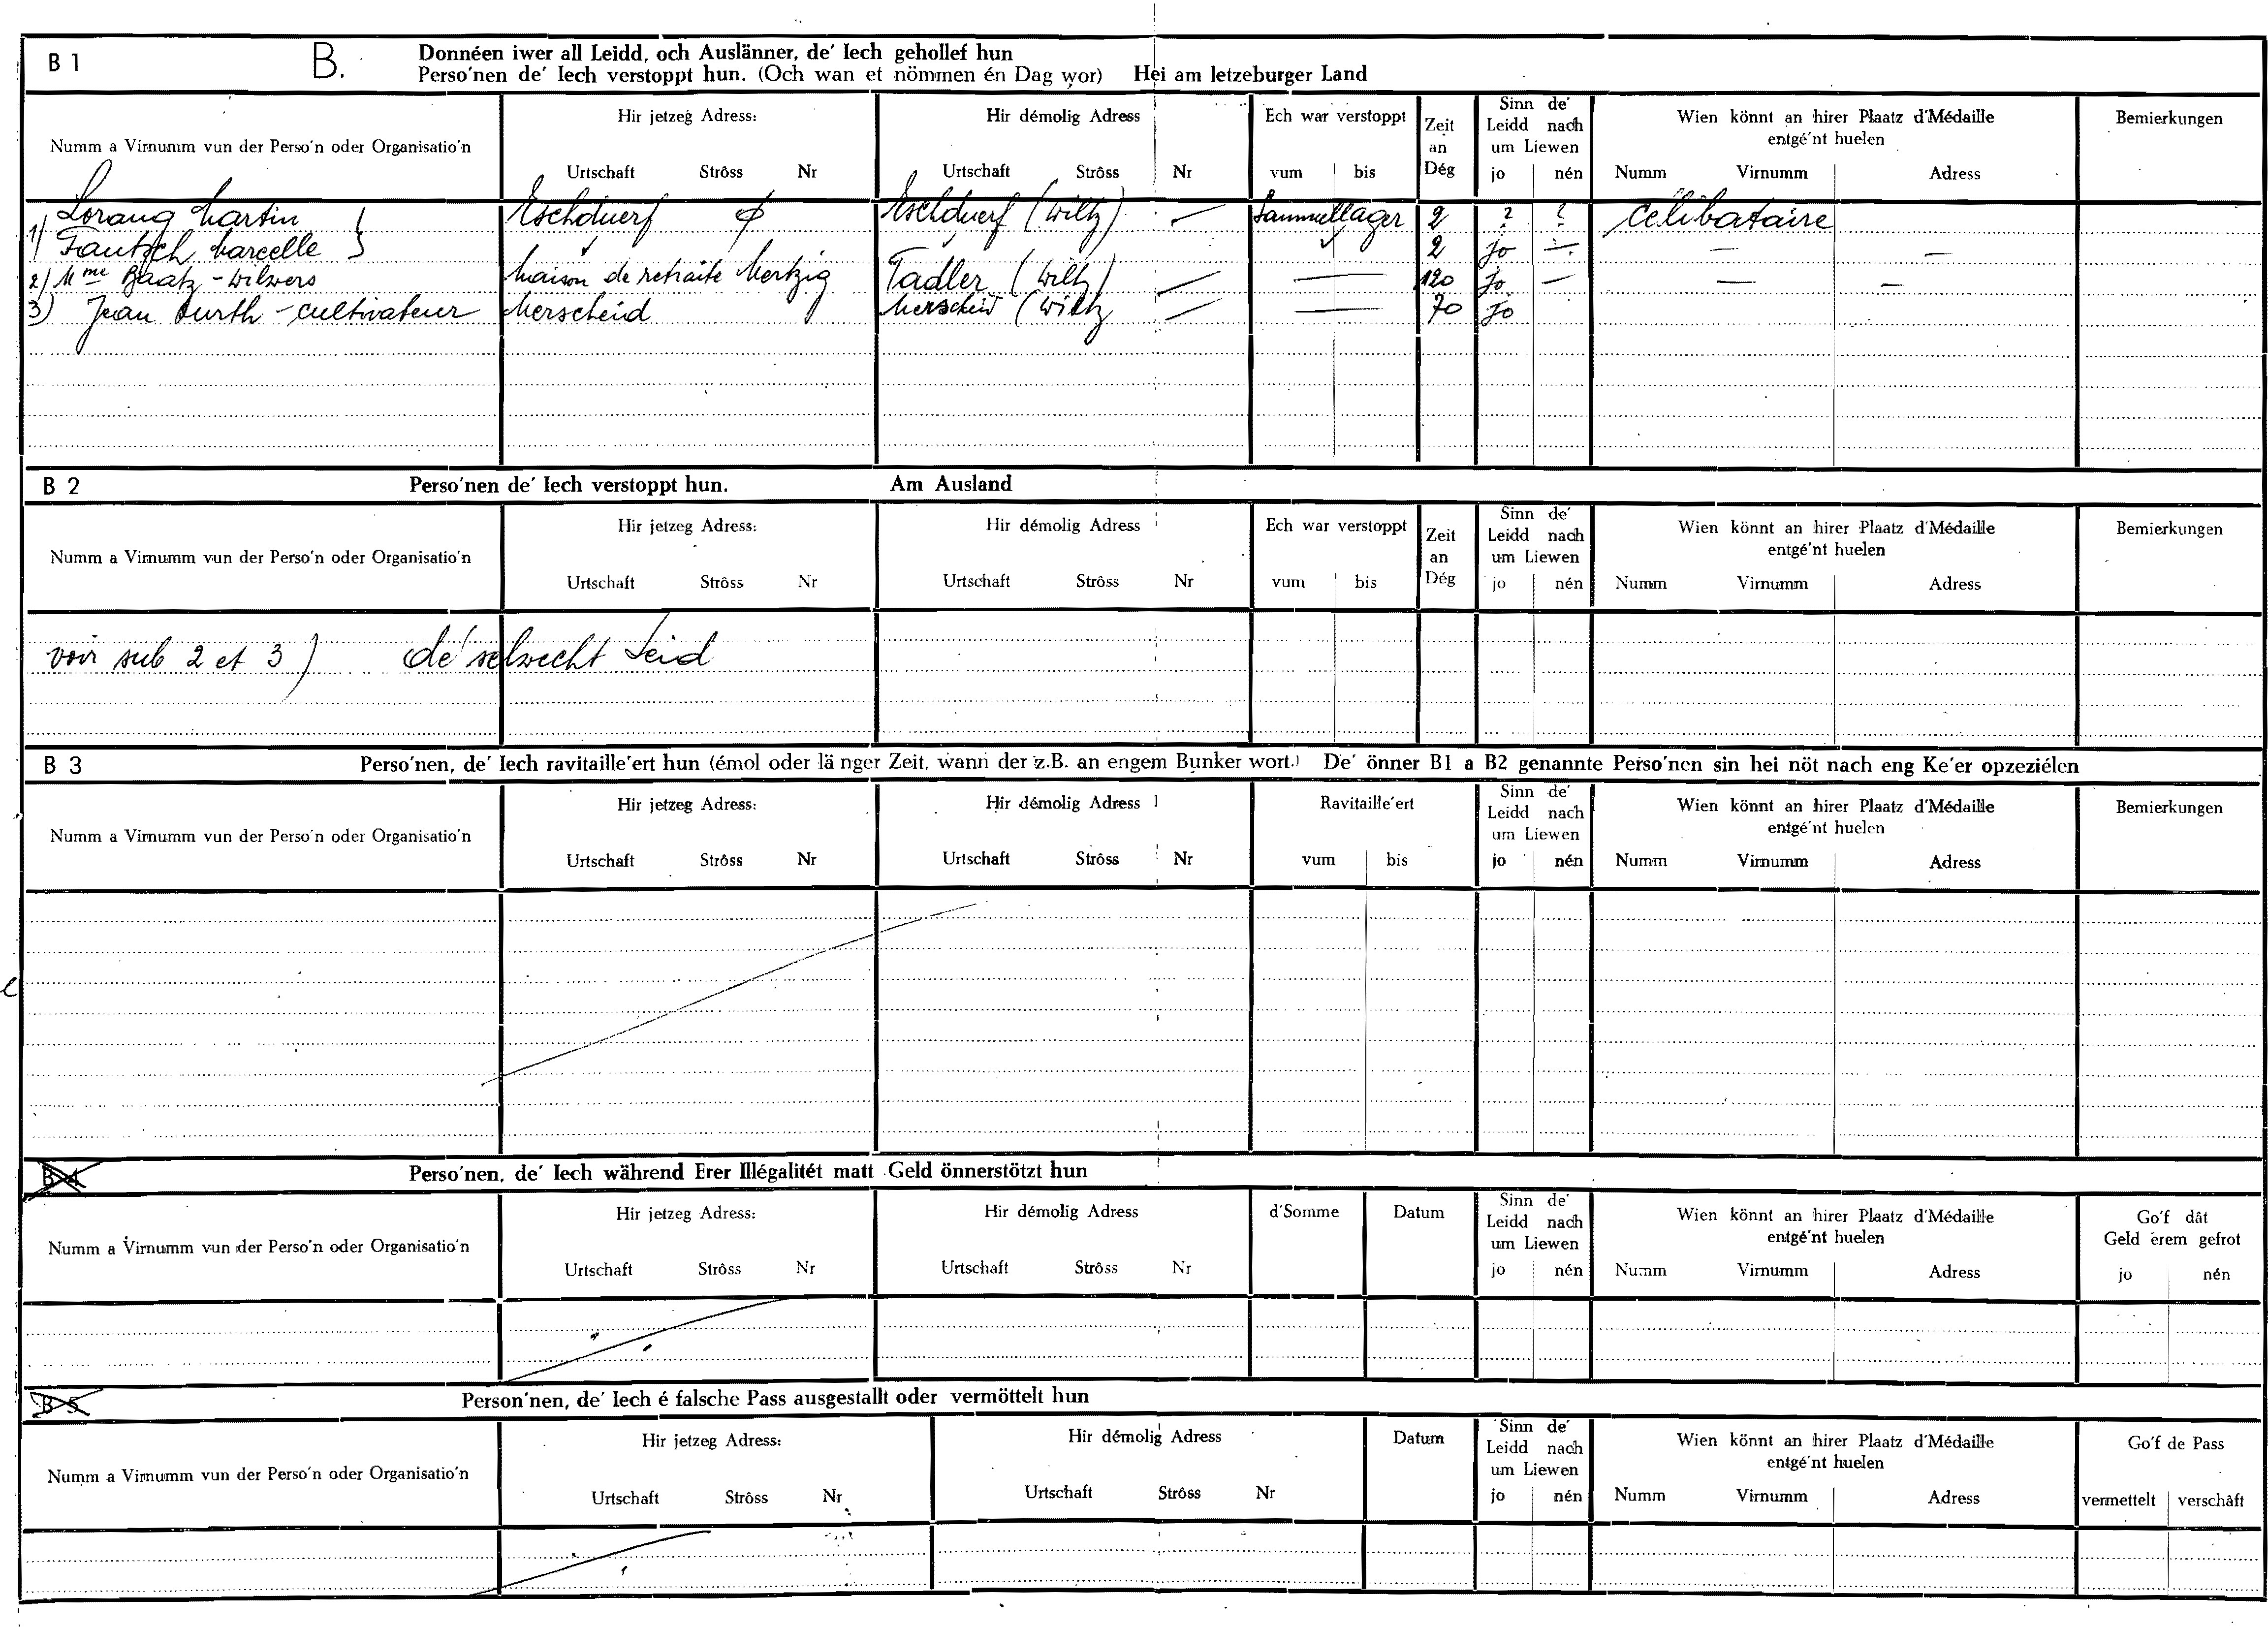 B 1 B. Donnéen iwer all Leidd, och Auslänner, de' Iech gehollef hun
Perso'nen de' Iech verstoppt hun. (Och wan et nömmen én Dag wor) Hei am letzeburger Land
Numm a Virnumm vun der Perso'n oder Organisatio'n
Hir jetzeg Adress:
Urtschaft Strôss Nr
Hir démolig Adress
Urtschaft Strôss Nr
Ech war verstoppt
vum bis
Zeit
an
Dég
Sinn de'
Leidd nach
um Liewen
jo nén
Wien könnt an hirer Plaatz d'Médaille
entgé'nt huelen
Numm Virnumm Adress
Bemierkungen
1) Lorang Martin Eschduerf Eschduerf (Wiltz) — Sammellager 2 ? ? célibataire
Fautsch Marcelle 2 jo — — —
2) Mme Baatz - Wilwers Maison de retraite Mertzig Tadler (Wiltz) — — 120 jo — — —
3) Jean Durth - cultivateur Merscheid Merscheid (Wiltz — — 70 jo
B 2 Perso'nen de' Iech verstoppt hun. Am Ausland
Numm a Virnumm vun der Perso'n oder Organisatio'n
Hir jetzeg Adress:
Urtschaft Strôss Nr
Hir démolig Adress
Urtschaft Strôss Nr
Ech war verstoppt
vum bis
Zeit
an
Dég
Sinn de'
Leidd nach
um Liewen
jo nén
Wien könnt an hirer Plaatz d'Médaille
entgé'nt huelen
Numm Virnumm Adress
Bemierkungen
voir sub 2 et 3) de' selwecht Leid
B 3 Perso'nen, de' Iech ravitaille'ert hun (émol oder länger Zeit, wann der z.B. an engem Bunker wort.) De' önner B1 a B2 genannte Perso'nen sin hei nöt nach eng Ke'er opzeziélen
Numm a Virnumm vun der Perso'n oder Organisatio'n
Hir jetzeg Adress:
Urtschaft Strôss Nr
Hir démolig Adress
Urtschaft Strôss Nr
Ravitaille'ert
vum bis
Sinn de'
Leidd nach
um Liewen
jo nén
Wien könnt an hirer Plaatz d'Médaille
entgé'nt huelen
Numm Virnumm Adress
Bemierkungen
B 4 Perso'nen, de' Iech während Erer Illégalitét matt Geld önnerstötzt hun
Numm a Virnumm vun der Perso'n oder Organisatio'n
Hir jetzeg Adress:
Urtschaft Strôss Nr
Hir démolig Adress
Urtschaft Strôss Nr
d'Somme
Datum
Sinn de'
Leidd nach
um Liewen
jo nén
Wien könnt an hirer Plaatz d'Médaille
entgé'nt huelen
Numm Virnumm Adress
Go'f dât
Geld erem gefrot
jo nén
B 5 Person'nen, de' Iech é falsche Pass ausgestallt oder vermöttelt hun
Numm a Virnumm vun der Perso'n oder Organisatio'n
Hir jetzeg Adress:
Urtschaft Strôss Nr
Hir démolig Adress
Urtschaft Strôss Nr
Datum
Sinn de'
Leidd nach
um Liewen
jo nén
Wien könnt an hirer Plaatz d'Médaille
entgé'nt huelen
Numm Virnumm Adress
Go'f de Pass
vermettelt verschâft